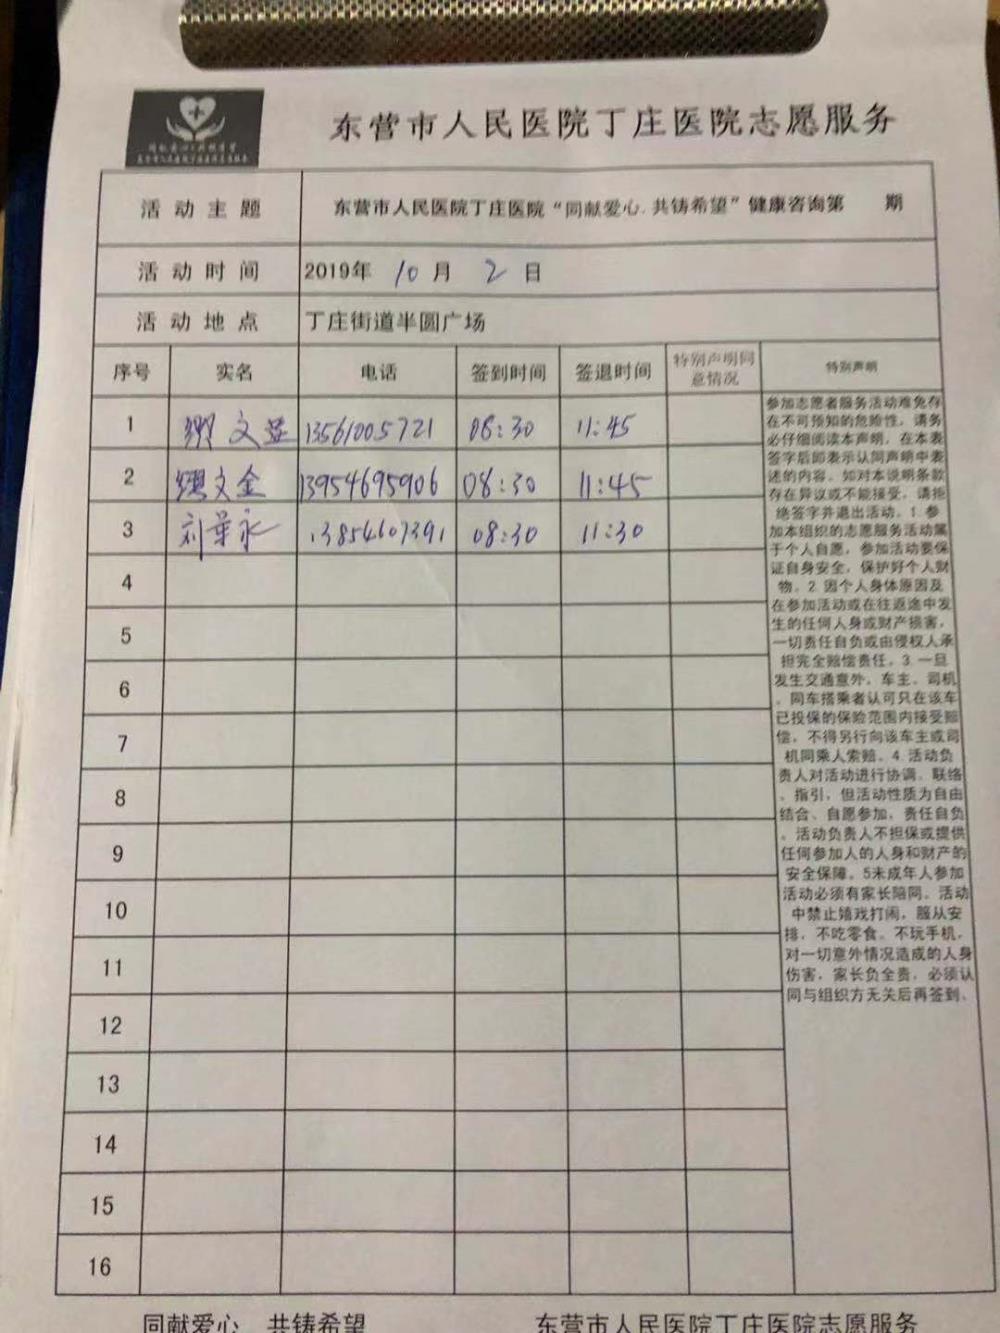 东营市人民医院丁庄医院志愿服务
活动主题 东营市人民医院丁庄医院“同献爱心.共铸希望”健康咨询第 期
活动时间 2019年 10 月 2 日
活动地点 丁庄街道半圆广场
序号 实名 电话 签到时间 签退时间 特别声明同意情况 特别声明
1 文 13561005721 08:30 11:45
2 文金 13954695906 08:30 11:45
3 刘 永 13854607391 08:30 11:30
4
5
6
7
8
9
10
11
12
13
14
15
16
参加志愿者服务活动难免存
在不可预知的危险性，请务
必仔细阅读本声明，在本表
签字后即表示认同声明中表
述的内容。如对本说明条款
存在异议或不能接受，请拒
绝签字并退出活动。1.参
加本组织的志愿服务活动属
于个人自愿，参加活动要保
证自身安全，保护好个人财
物。2.因个人身体原因及
在参加活动或在往返途中发
生的任何人身或财产损害，
一切责任自负或由侵权人承
担完全赔偿责任。3.一旦
发生交通意外，车主、司机
、同车搭乘者认可只在该车
已投保的保险范围内接受赔
偿，不得另行向该车主或司
机同乘人索赔。4.活动负
责人对活动进行协调、联络
、指引，但活动性质为自由
结合、自愿参加，责任自负
。活动负责人不担保或提供
任何参加人的人身和财产的
安全保障。5未成年人参加
活动必须有家长陪同。活动
中禁止嬉戏打闹，服从安
排，不吃零食。不玩手机，
对一切意外情况造成的人身
伤害，家长负全责，必须认
同与组织方无关后再签到、
同献爱心 共铸希望 东营市人民医院丁庄医院志愿服务